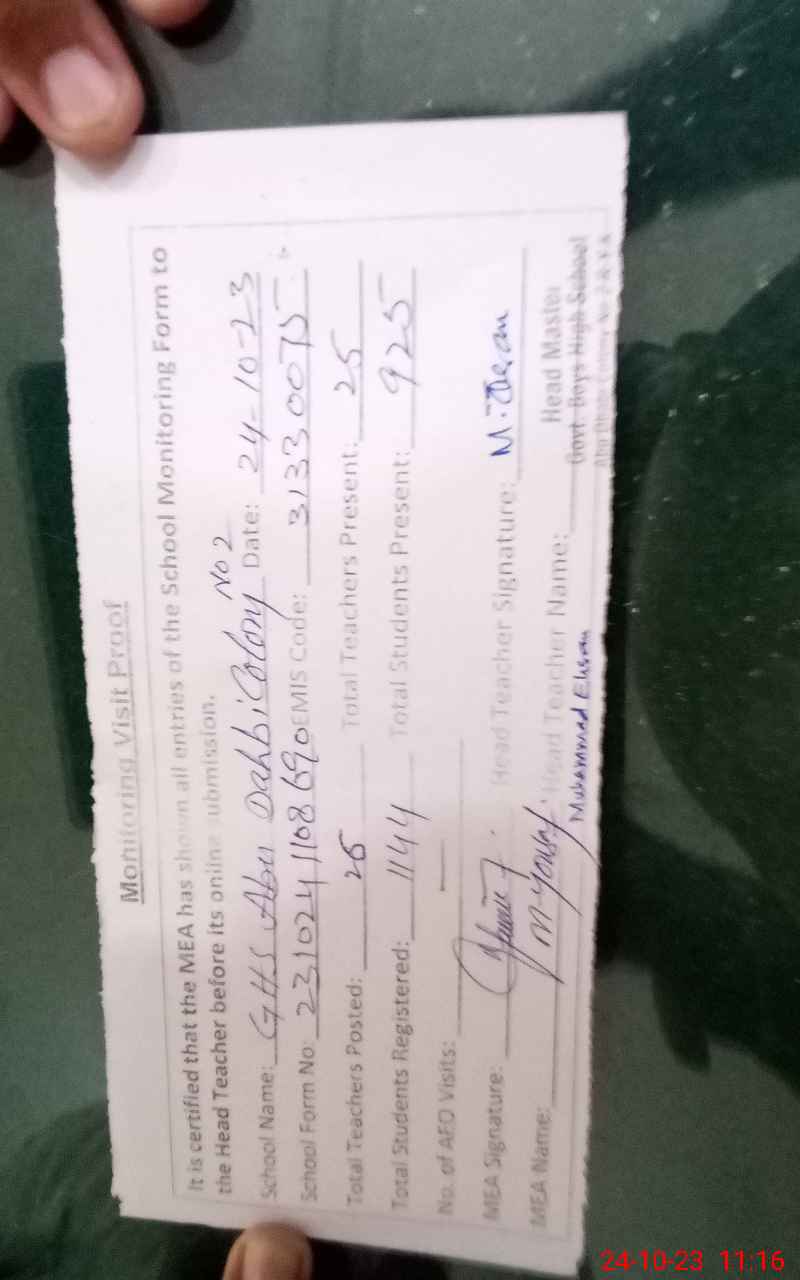 Monitoring Visit Proof
It is certified that the MEA has shown all entries of the School Monitoring Form to
the Head Teacher before its online submission.
School Name: GHS Abu Dahbi Colony No 2 Date: 24-10-23
School Form No: 2310241108690 EMIS Code: 31330075
Total Teachers Posted: 26 Total Teachers Present: 25
Total Students Registered: 1144 Total Students Present: 925
No. of AEO Visits: —
MEA Signature: Head Teacher Signature: M. Ehsan
MEA Name: M. Yousaf Head Teacher Name: Head Master
Muhammad Ehsan Govt. Boys High School
Abu Dhabi Colony No. 2 R.Y.K
24-10-23 11:16